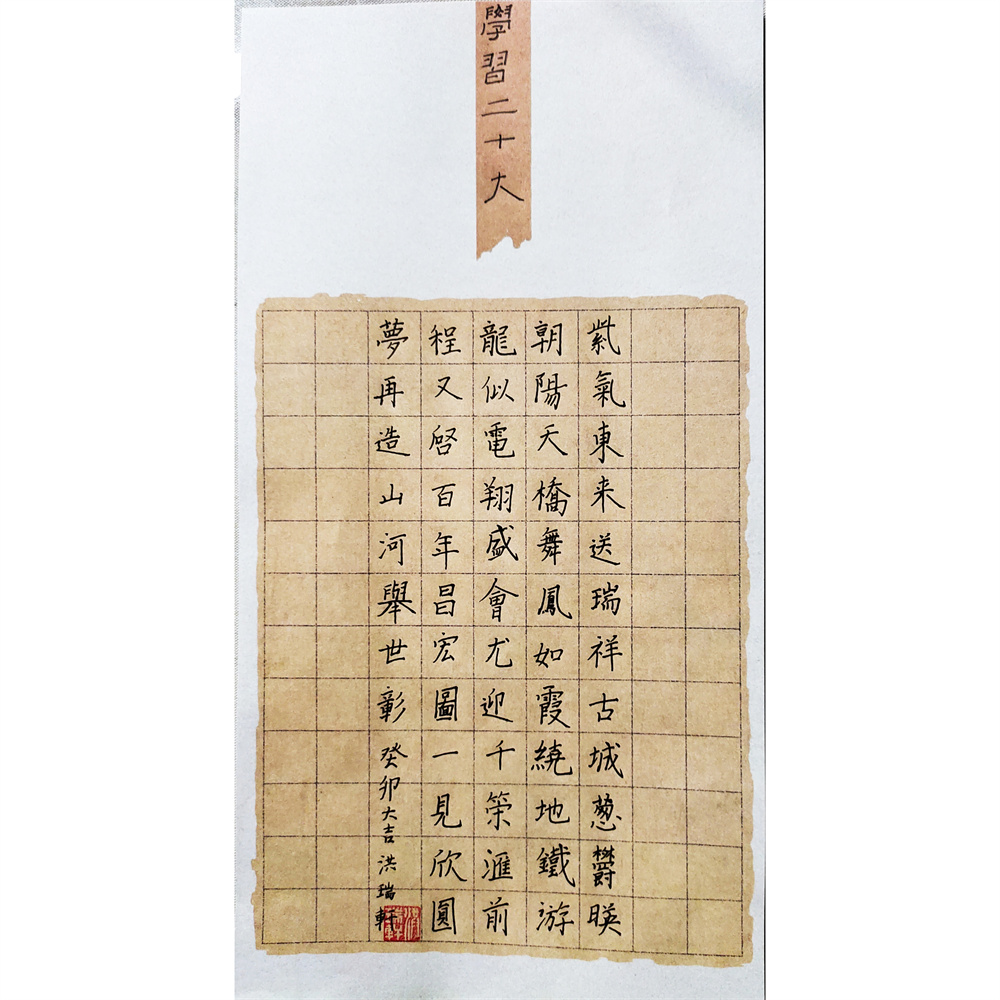 學習二十大
紫氣東来送瑞祥古城蔥鬱映
朝陽天橋舞鳳如霞繞地鐵游
龍似電翔盛會尤迎千策滙前
程又啓百年昌宏圖一見欣圓
夢再造山河舉世彰癸卯大吉洪瑞軒